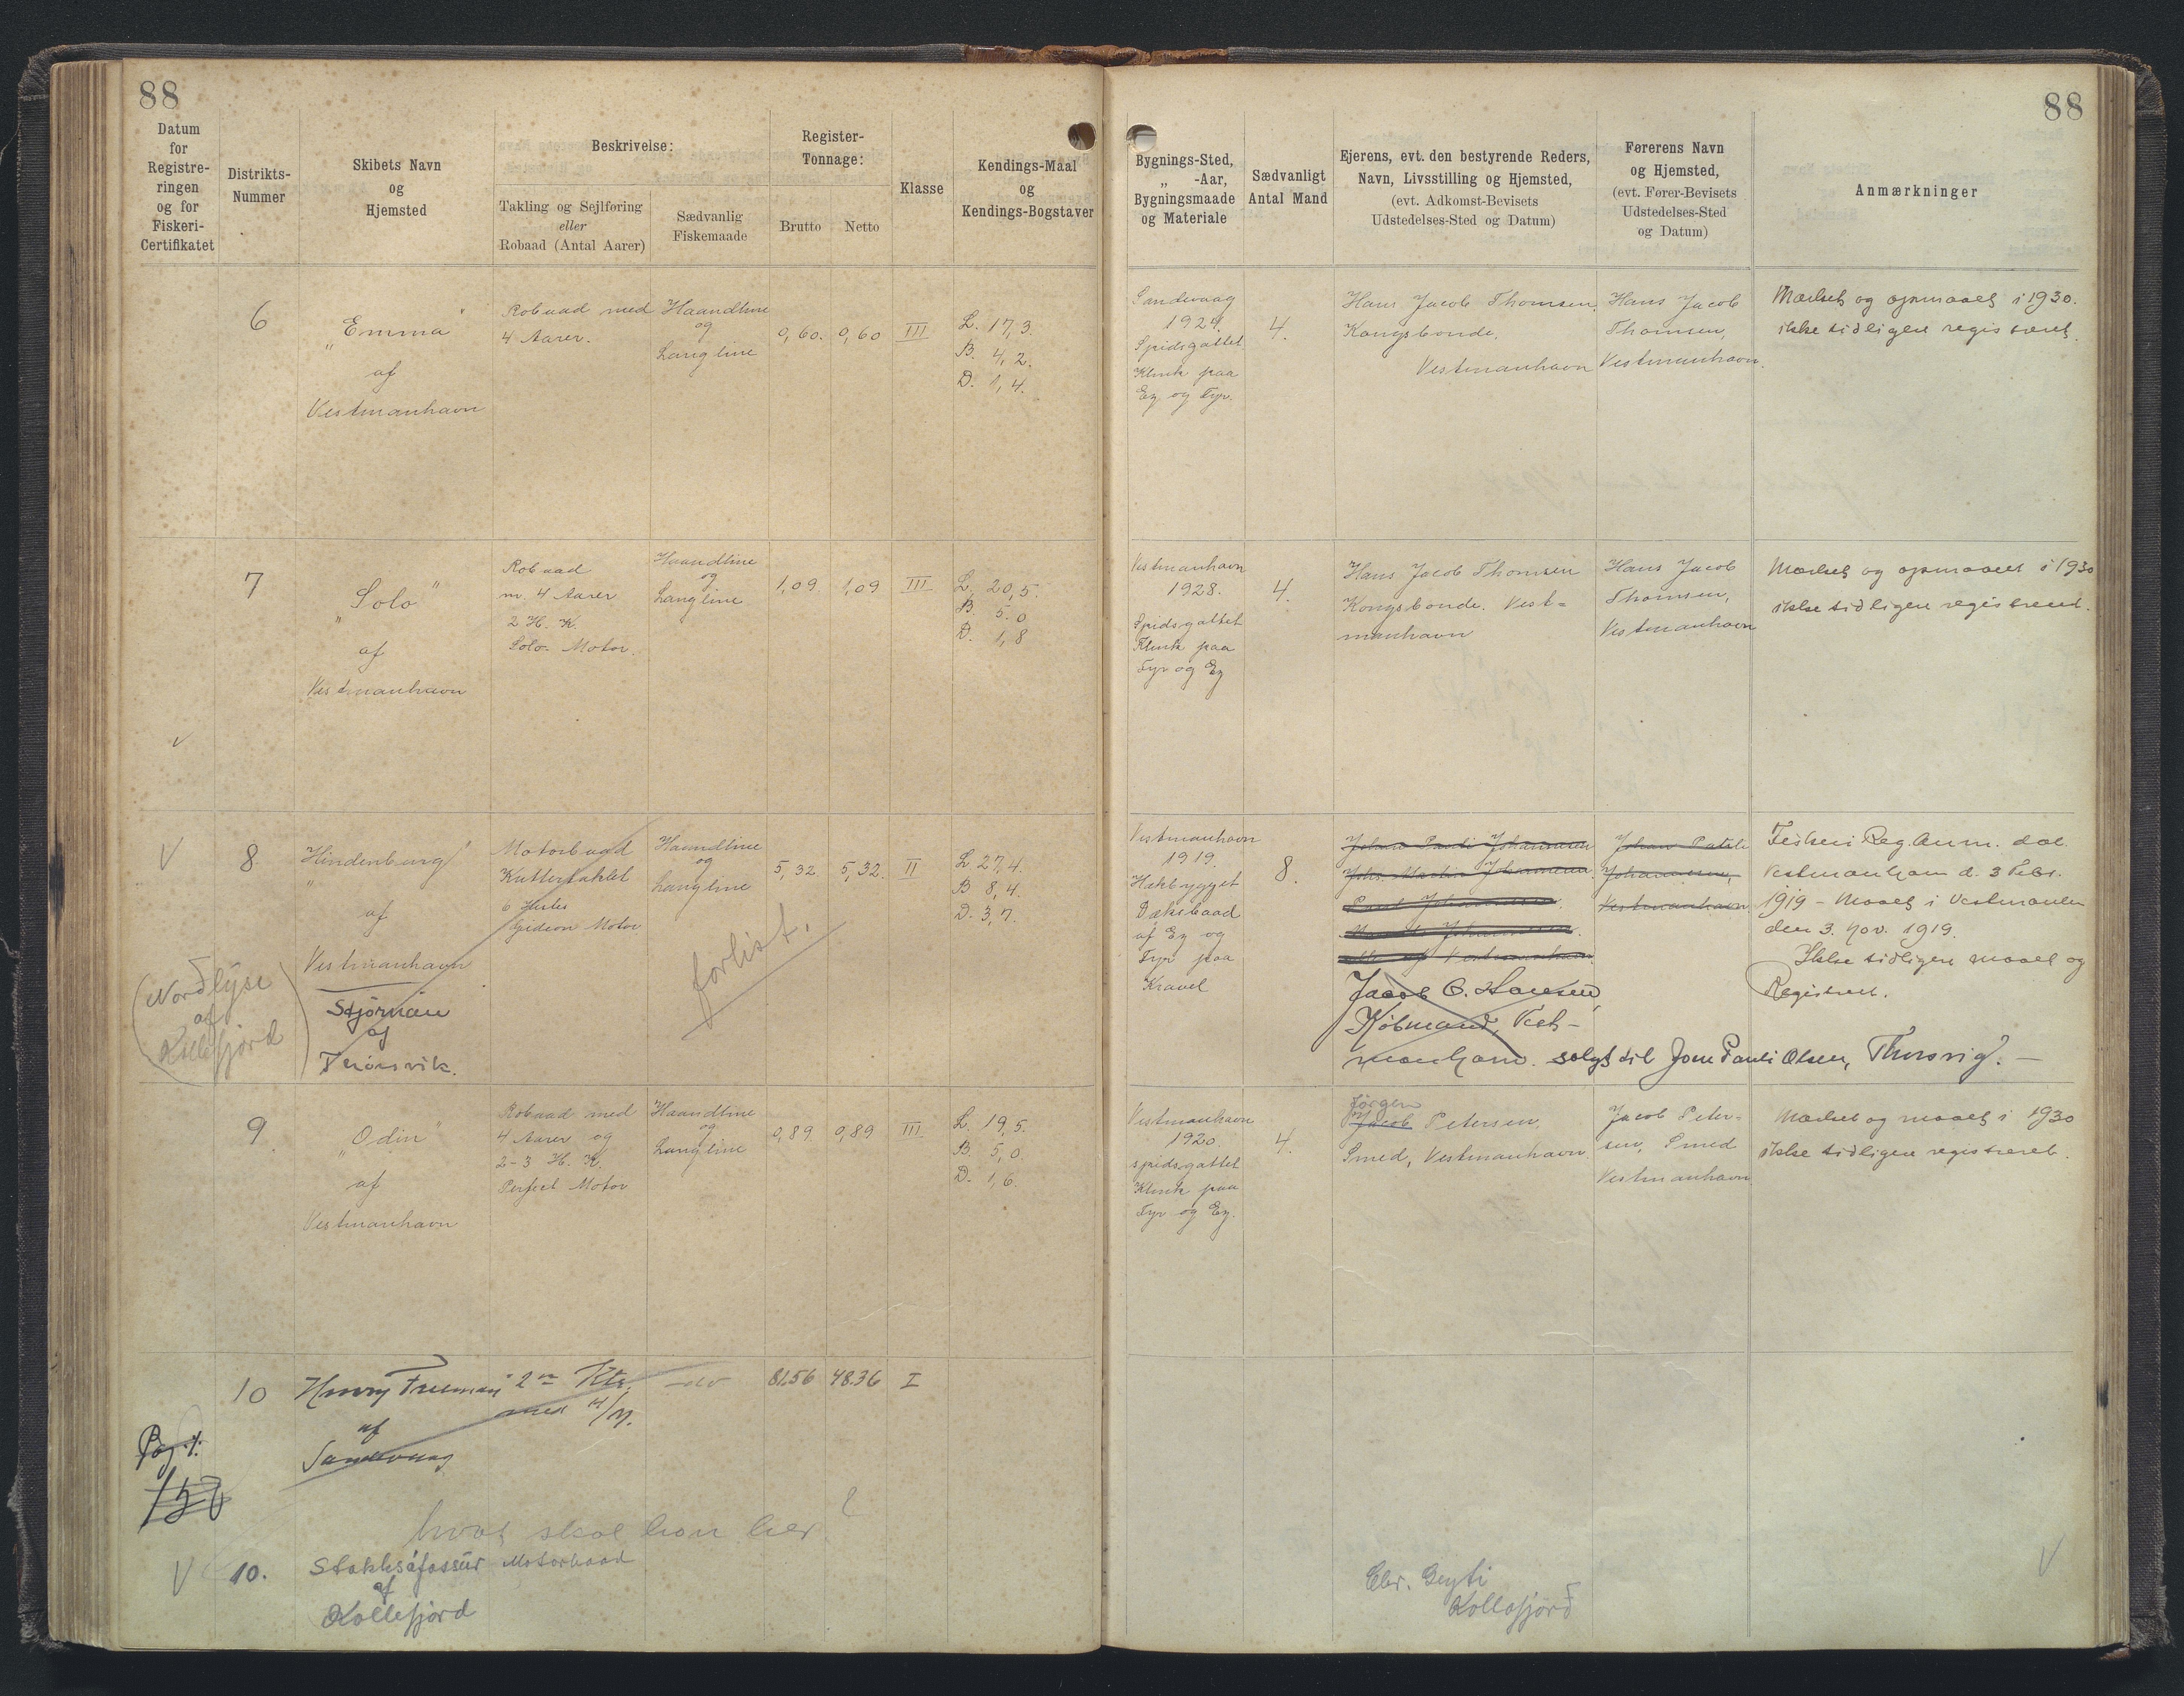 88
88
Datum
for
Registre-
ringen
og for
Fiskeri-
Certifikatet
Distrikts-
Nummer
Skibets Navn
og
Hjemsted
Beskrivelse:
Takling og Sejlføring
eller
Robaad (Antal Aarer)
Sædvanlig
Fiskemaade
Register-
Tonnage:
Brutto
Netto
Klasse
Kendings-Maal
og
Kendings-Bogstaver
Bygnings-Sted,
„ -Aar,
Bygningsmaade
og Materiale
Sædvanligt
Antal Mand
Ejerens, evt. den bestyrende Reders,
Navn, Livsstilling og Hjemsted,
(evt. Adkomst-Bevisets
Udstedelses-Sted og Datum)
Førerens Navn
og Hjemsted,
(evt. Fører-Bevisets
Udstedelses-Sted
og Datum)
Anmærkninger
6
„Emma"
af
Vestmanhavn
Robaad med
4 Aarer.
Haandline
og
Langline
0,60.
0,60
III
L. 17,3.
B. 4,2.
D. 1,4.
Sandevaag
Spidsgattet
Klink paa
Eg og Fyr.
4.
Hans Jacob Thomsen.
Kongsbonde,
Vestmanhavn
Hans Jacob
Thomsen,
Vestmanhavn.
Mærket og opmaalt i 1930.
ikke tidligere registreret.
7
„Solo"
af
Vestmanhavn
Robaad
m. 4 Aarer
2 H. K.
Solo- Motor.
Haandline
og
Langline
1,09.
1,09
III
L. 20,5.
B. 5.0
D. 1,8
Vestmanhavn
1928.
Spidsgattet
Klink paa
Fyr og Eg
4.
Hans Jacob Thomsen
Kongsbonde. Vest=
manhavn
Hans Jacob
Thomsen,
Vestmanhavn
Mærket og opmaalt i 1930
ikke tidligere registreret.
V
8.
„Hindenburg"
af
Vestmanhavn
Stjørnan
af
Thórsvik.
(Nordlýse
af
Kollefjord)
Motorbaad
Kuttertaklet
6 Hestes
Gideon Motor
Haandline
og
Langline
forlist.
5,32
5,32.
II
L 27,4.
B 8,4.
D. 3,7.
Vestmanhavn
1919.
Hækbygget
Dæksbaad
af Eg og
Fyr paa
Kravel
8.
Jacob C. Hansen,
Købmand, Vest-
manhavn. solgt til Jone Pauli Olsen, Thorsvig. —
Vestmanhavn
Fiskeri Reg. Anm. dat.
Vestmanhavn d. 3 Febr.
1919 - Maalt i Vestmanhn
den 3. Nov. 1919.
Ikke tidligere maalt og
Registreret.
9.
„Odin"
af
Vestmanhavn
Robaad med
4 Aarer og
2-3 H. K.
Perfect Motor
Haandline
og
Langline
0,89
0,89
III
L. 19,5.
B. 5,0.
D. 1,6.
Vestmanhavn
1920.
spidsgattet
Klink paa
Fyr og Eg.
4.
Jørgen
Jacob Petersen,
Smed, Vestmanhavn.
Jacob Peter-
sen, Smed
Vestmanhavn.
Mærket og maalt i 1930
ikke tidligere registreret.
10
Henry Freeman
af
Sandevaag
2m Kts.
med H/M.
-do-
81.56
48.36
I
Pag.
150
hvat skal hon her ?
V
10.
Stakksáfossur
af
Kollefjord
Motorbaad
Chr. Geyti
Kollafjørd
V